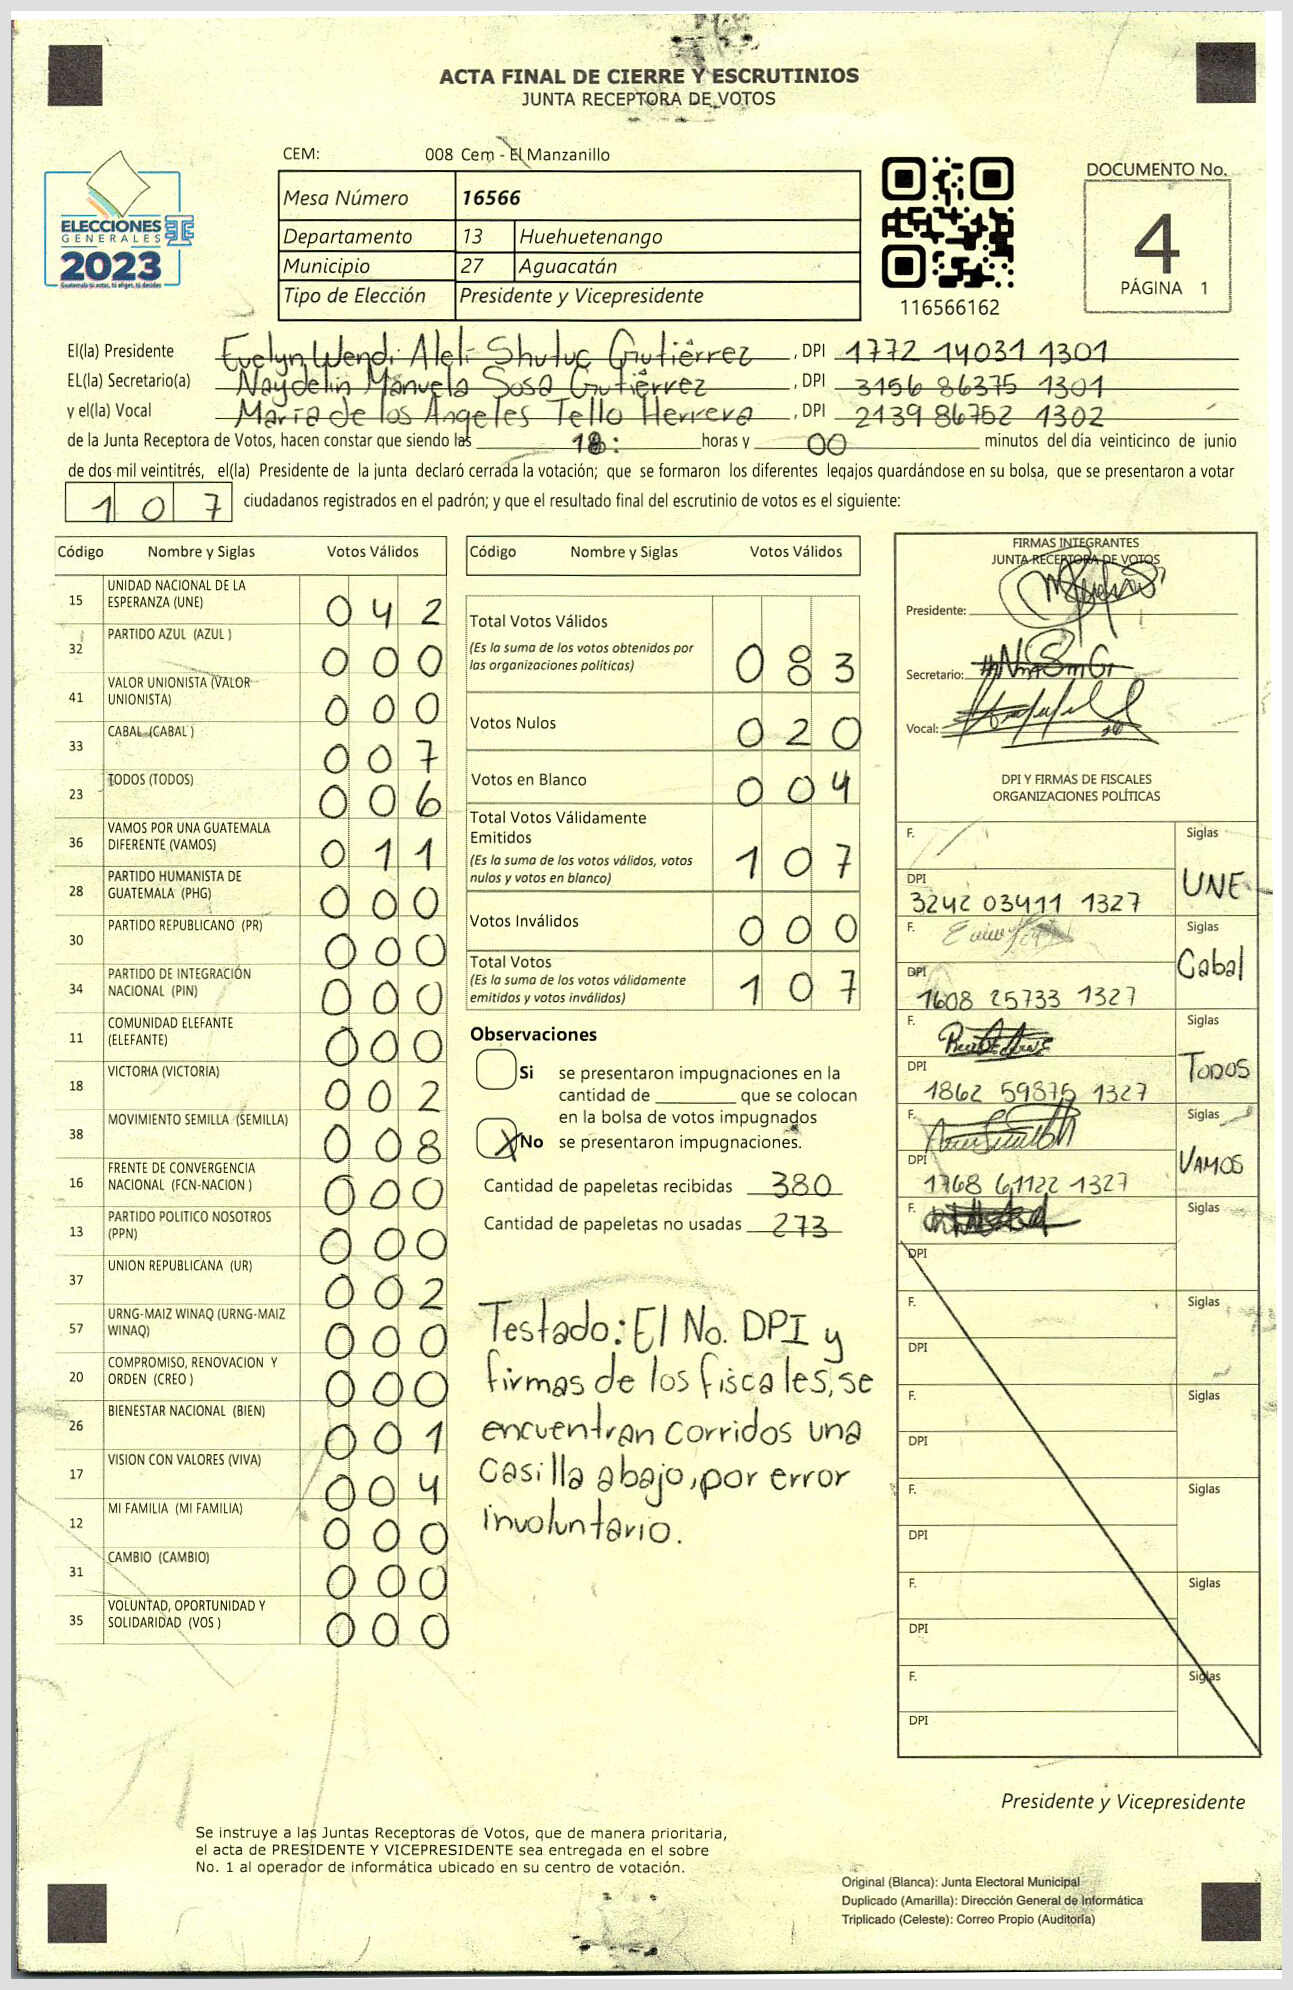 ACTA FINAL DE CIERRE Y ESCRUTINIOS
JUNTA RECEPTORA DE VOTOS
CEM: 008 Cem - El Manzanillo
Mesa Número 16566
Departamento 13 Huehuetenango
Municipio 27 Aguacatán
Tipo de Elección Presidente y Vicepresidente
ELECCIONES
GENERALES
2023
Guatemala tú votas, tú eliges, tú decides
116566162
DOCUMENTO No.
4
PÁGINA 1
El(la) Presidente Evelyn Wendi Aleli Shutuc Gutiérrez , DPI 1772 14031 1301
EL(la) Secretario(a) Naydelin Manuela Sosa Gutiérrez , DPI 3156 86375 1301
y el(la) Vocal María de los Angeles Tello Herrera , DPI 2139 86752 1302
de la Junta Receptora de Votos, hacen constar que siendo las 18: horas y 00 minutos del día veinticinco de junio
de dos mil veintitrés, el(la) Presidente de la junta declaró cerrada la votación; que se formaron los diferentes legajos guardándose en su bolsa, que se presentaron a votar
107 ciudadanos registrados en el padrón; y que el resultado final del escrutinio de votos es el siguiente:
Código Nombre y Siglas Votos Válidos
15 UNIDAD NACIONAL DE LA
ESPERANZA (UNE) 042
32 PARTIDO AZUL (AZUL ) 000
41 VALOR UNIONISTA (VALOR
UNIONISTA) 000
33 CABAL (CABAL ) 007
23 TODOS (TODOS) 006
36 VAMOS POR UNA GUATEMALA
DIFERENTE (VAMOS) 011
28 PARTIDO HUMANISTA DE
GUATEMALA (PHG) 000
30 PARTIDO REPUBLICANO (PR) 000
34 PARTIDO DE INTEGRACIÓN
NACIONAL (PIN) 000
11 COMUNIDAD ELEFANTE
(ELEFANTE) 000
18 VICTORIA (VICTORIA) 002
38 MOVIMIENTO SEMILLA (SEMILLA) 008
16 FRENTE DE CONVERGENCIA
NACIONAL (FCN-NACION ) 000
13 PARTIDO POLITICO NOSOTROS
(PPN) 000
37 UNION REPUBLICANA (UR) 002
57 URNG-MAIZ WINAQ (URNG-MAIZ
WINAQ) 000
20 COMPROMISO, RENOVACION Y
ORDEN (CREO ) 000
26 BIENESTAR NACIONAL (BIEN) 001
17 VISION CON VALORES (VIVA) 004
12 MI FAMILIA (MI FAMILIA) 000
31 CAMBIO (CAMBIO) 000
35 VOLUNTAD, OPORTUNIDAD Y
SOLIDARIDAD (VOS ) 000
Código Nombre y Siglas Votos Válidos
Total Votos Válidos
(Es la suma de los votos obtenidos por
las organizaciones políticas) 083
Votos Nulos 020
Votos en Blanco 004
Total Votos Válidamente
Emitidos
(Es la suma de los votos válidos, votos
nulos y votos en blanco) 107
Votos Inválidos 000
Total Votos
(Es la suma de los votos válidamente
emitidos y votos inválidos) 107
Observaciones
Si se presentaron impugnaciones en la
cantidad de ________ que se colocan
en la bolsa de votos impugnados
X No se presentaron impugnaciones.
Cantidad de papeletas recibidas 380
Cantidad de papeletas no usadas 273
Testado: El No. DPI y
firmas de los fiscales, se
encuentran corridos una
casilla abajo, por error
involuntario.
FIRMAS INTEGRANTES
JUNTA RECEPTORA DE VOTOS
Presidente:
Secretario:
Vocal:
DPI Y FIRMAS DE FISCALES
ORGANIZACIONES POLÍTICAS
F. Siglas
DPI UNE
3242 03411 1327
F. Siglas
DPI Cabal
1608 25733 1327
F. Siglas
DPI TODOS
1862 59876 1327
F. Siglas
DPI VAMOS
1768 61122 1327
F. Siglas
DPI
F. Siglas
DPI
F. Siglas
DPI
F. Siglas
DPI
F. Siglas
DPI
F. Siglas
DPI
Presidente y Vicepresidente
Se instruye a las Juntas Receptoras de Votos, que de manera prioritaria,
el acta de PRESIDENTE Y VICEPRESIDENTE sea entregada en el sobre
No. 1 al operador de informática ubicado en su centro de votación.
Original (Blanca): Junta Electoral Municipal
Duplicado (Amarilla): Dirección General de Informática
Triplicado (Celeste): Correo Propio (Auditoría)